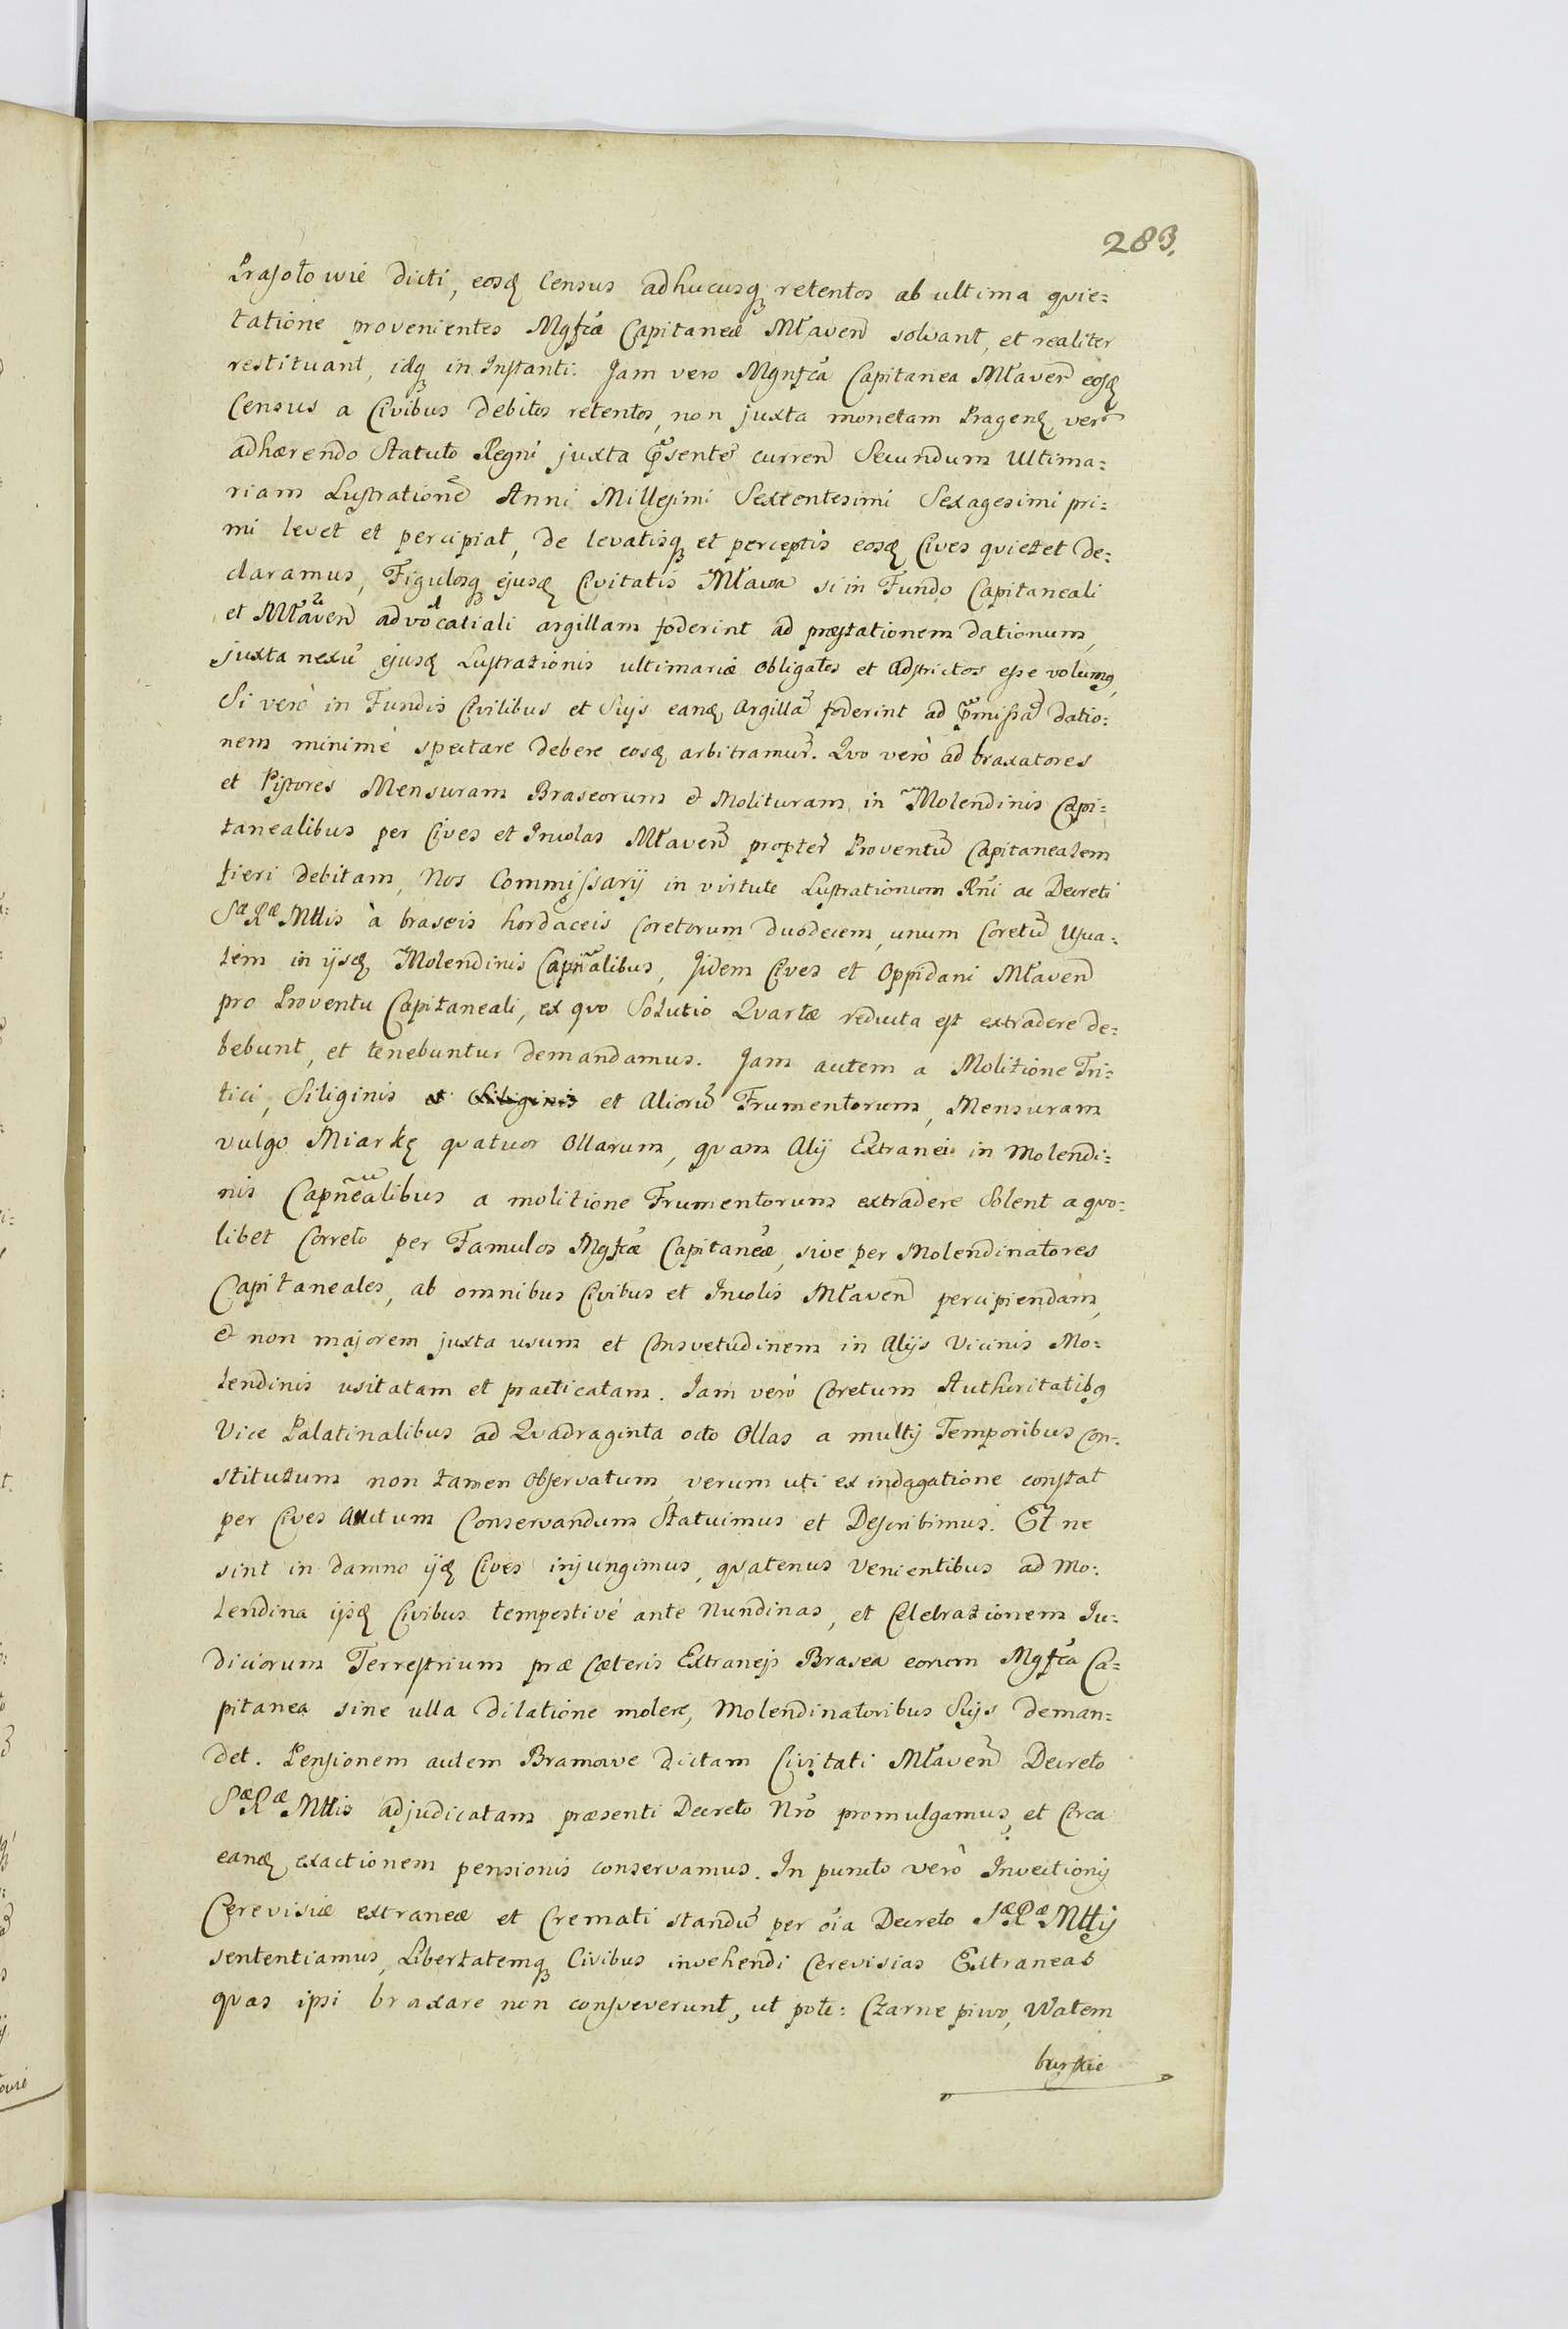 283.
Prasołowie dicti, eosq̃ Census adhucusq̨ retentos ab ultima qvie=
tatione provenientes Mgfcæ Capitaneæ Mławen̄ solvant, et realiter
restituant, idq̨ in Instanti. Jam vero Mgnfca Capitanea Mławen̄ eosq̃
Census a Civibus debitos retentos, non juxta monetam Pragenq̃, ver̃
adhærendo Statuto Regni juxta p̃sente curren̄ Secundum Ultima=
riam Lustratione Anni Millesimi Sexcentesimi Sexagesimi pri=
mi levet et percipiat, de levatisq̨ et perceptis eosq̃ Cives qvietet de=
claramus, Figulosq̨ ejusq̃ Civitatis Mława si in Fundo Capitaneali
et Mławen̄ advocatiali argillam foderint ad præstationem dationum,
juxta nexu ejusq̃ Lustrationis ultimariæ obligatos et adstrictos esse volumq̨,
Si verò in Fundis Civilibus et Suis eanq̃ Argillã foderint ad p̃missã datio=
nem minimè spectare debere eosq̃ arbitramur. Qvo verò ad braxatores
et Pistores Mensuram Braseorum & Molituram in Molendinis Capi=
tanealibus per Cives et Incolas Mławen̄ propter Proventũ Capitanealem
fieri debitam, Nos Commissarij in virtute Lustrationum Rñi ac Decreti
Sæ Ræ Mttis à braseis hordaceis Coretorum duodecem, unum Coretũ Usua=
lem in ijsq̃ Molendinis Capñalibus, Jidem Cives et Oppidani Mławen̄
pro Proventu Capitaneali, ex qvo Solutio Qvartæ reducta est extradere de=
bebunt, et tenebuntur demandamus. Jam autem a Molitione Tri=
tici, Siliginis et Siliginis et Aliorũ Frumentorum, Mensuram
vulgo Miarkę qvatuor Ollarum, qvam Alij Extranei in Molendi=
nis Capñealibus a molitione Frumentorum extradere Solent a qvo=
libet Correto per Famulos Mgfcæ Capitaneæ, sive per Molendinatores
Capitaneales, ab omnibus Civibus et Incolis Mławen̄ percipiendam,
& non majorem juxta usum et Consvetudinem in Alijs Vicinis Mo=
lendinis usitatam et practicatam. Jam verò Coretum Authoritatibq̨
Vice Palatinalibus ad Qvadraginta octo Ollas a multis Temporibus con=
stitutum non tamen Observatum, verum uti ex indagatione constat
per Cives auctum Conservandum Statuimus et Describimus. Et ne
sint in damno ijq̃ Cives injungimus, qvatenus Venientibus ad Mo=
lendina ijsq̃ Civibus tempestivè ante Nundinas, et Celebrationem Ju=
diciorum Terrestrium præ Cæteris Extraneis Brasea eorum Mgfca Ca=
pitanea sine ulla dilatione molere, Molendinatoribus Suis deman=
det. Pensionem autem Bramowe dictam Civitati Mławen̄ Decreto
Sæ Ræ Mttis adjudicatam præsenti Decreto Nrõ promulgamus, et Circa
eanq̃ exactionem pensionis conservamus. In puncto verò Invectionis
Cerevisiæ extraneæ et Cremati standũ per oĩa Decreto Sæ Ræ Mttis
sententiamus, Libertatemq̨ Civibus invehendi Cerevisias Extraneas
qvas ipsi braxare non consveverunt, ut pote: Czarne piwo, Watem
burskie